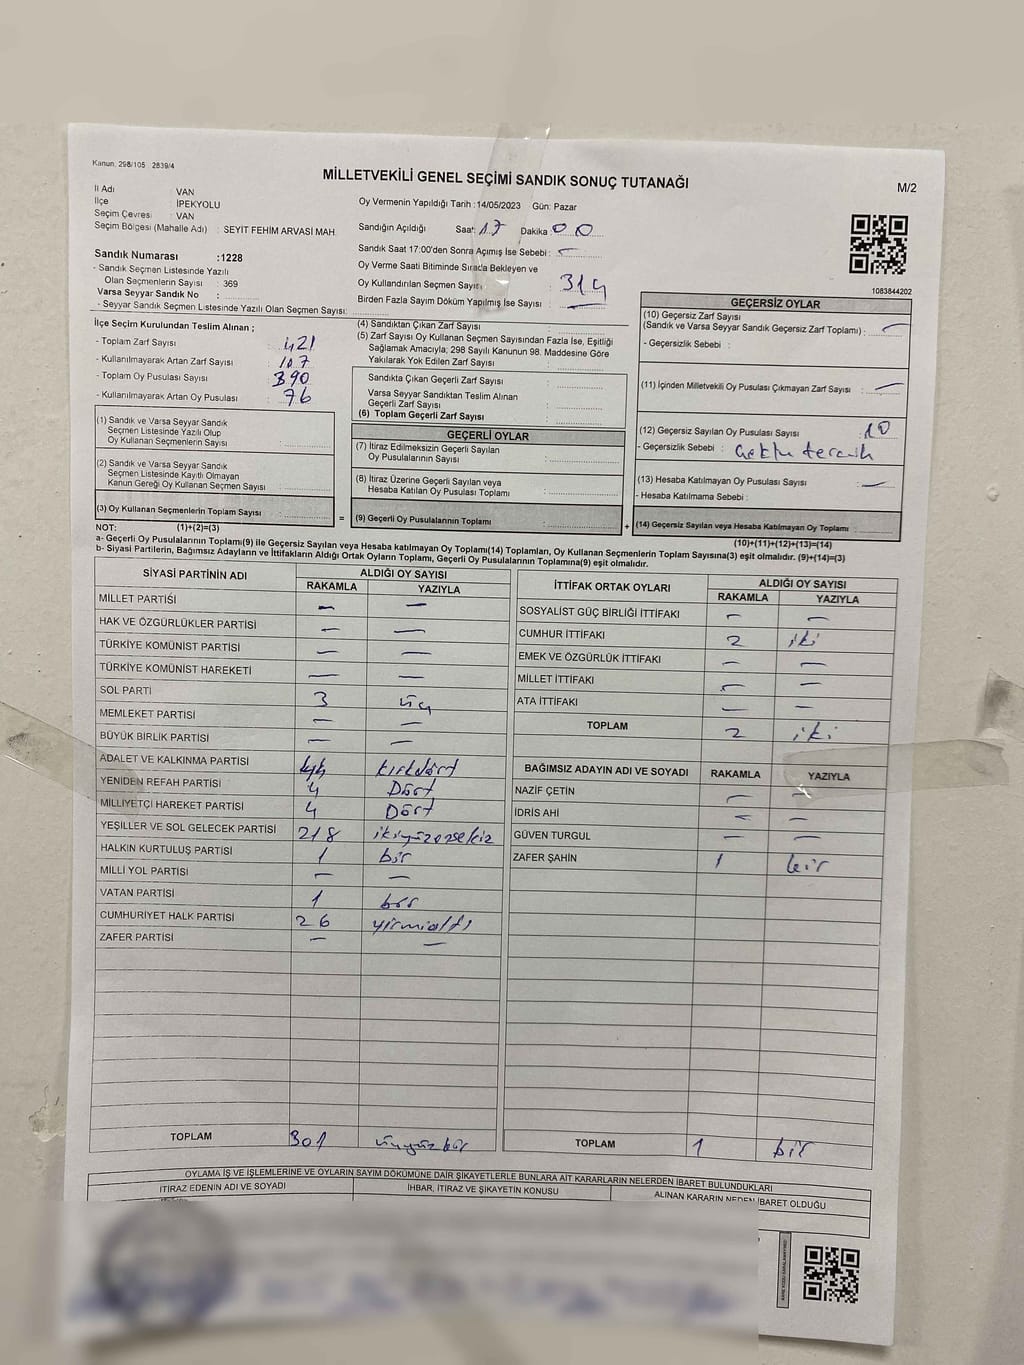 Kanun: 298/105 2839/4
MİLLETVEKİLİ GENEL SEÇİMİ SANDIK SONUÇ TUTANAĞI
M/2
İl Adı : VAN
İlçe : İPEKYOLU
Seçim Çevresi : VAN
Seçim Bölgesi (Mahalle Adı) : SEYİT FEHİM ARVASİ MAH.
Sandık Numarası :1228
- Sandık Seçmen Listesinde Yazılı
Olan Seçmenlerin Sayısı : 369
Varsa Seyyar Sandık No :
- Seyyar Sandık Seçmen Listesinde Yazılı Olan Seçmen Sayısı:
Oy Vermenin Yapıldığı Tarih :14/05/2023 Gün: Pazar
Sandığın Açıldığı Saat: 17 Dakika 00
Sandık Saat 17:00'den Sonra Açımış İse Sebebi : -
Oy Verme Saati Bitiminde Sırada Bekleyen ve
Oy Kullandırılan Seçmen Sayısı 314
Birden Fazla Sayım Döküm Yapılmış İse Sayısı : —
1083844202
İlçe Seçim Kurulundan Teslim Alınan ;
- Toplam Zarf Sayısı : 421
- Kullanılmayarak Artan Zarf Sayısı : 107
- Toplam Oy Pusulası Sayısı : 390
- Kullanılmayarak Artan Oy Pusulası : 76
(1) Sandık ve Varsa Seyyar Sandık
Seçmen Listesinde Yazılı Olup
Oy Kullanan Seçmenlerin Sayısı :
(2) Sandık ve Varsa Seyyar Sandık
Seçmen Listesinde Kayıtlı Olmayan
Kanun Gereği Oy Kullanan Seçmen Sayısı :
(3) Oy Kullanan Seçmenlerin Toplam Sayısı :
=
(4) Sandıktan Çıkan Zarf Sayısı :
(5) Zarf Sayısı Oy Kullanan Seçmen Sayısından Fazla İse, Eşitliği
Sağlamak Amacıyla; 298 Sayılı Kanunun 98. Maddesine Göre
Yakılarak Yok Edilen Zarf Sayısı :
Sandıkta Çıkan Geçerli Zarf Sayısı :
Varsa Seyyar Sandıktan Teslim Alınan
Geçerli Zarf Sayısı :
(6) Toplam Geçerli Zarf Sayısı :
GEÇERLİ OYLAR
(7) İtiraz Edilmeksizin Geçerli Sayılan
Oy Pusulalarının Sayısı :
(8) İtiraz Üzerine Geçerli Sayılan veya
Hesaba Katılan Oy Pusulası Toplamı :
(9) Geçerli Oy Pusulalarının Toplamı :
+
GEÇERSİZ OYLAR
(10) Geçersiz Zarf Sayısı
(Sandık ve Varsa Seyyar Sandık Geçersiz Zarf Toplamı) : —
- Geçersizlik Sebebi :
(11) İçinden Milletvekili Oy Pusulası Çıkmayan Zarf Sayısı : —
(12) Geçersiz Sayılan Oy Pusulası Sayısı : 10
- Geçersizlik Sebebi :
(13) Hesaba Katılmayan Oy Pusulası Sayısı : —
- Hesaba Katılmama Sebebi :
(14) Geçersiz Sayılan veya Hesaba Katılmayan Oy Toplamı :
NOT: (1)+(2)=(3)
(10)+(11)+(12)+(13)=(14)
a- Geçerli Oy Pusulalarının Toplamı(9) ile Geçersiz Sayılan veya Hesaba katılmayan Oy Toplamı(14) Toplamları, Oy Kullanan Seçmenlerin Toplam Sayısına(3) eşit olmalıdır. (9)+(14)=(3)
b- Siyasi Partilerin, Bağımsız Adayların ve İttifakların Aldığı Ortak Oyların Toplamı, Geçerli Oy Pusulalarının Toplamına(9) eşit olmalıdır.
SİYASİ PARTİNİN ADI ALDIĞI OY SAYISI
RAKAMLA YAZIYLA
MİLLET PARTİSİ — —
HAK VE ÖZGÜRLÜKLER PARTİSİ — —
TÜRKİYE KOMÜNİST PARTİSİ — —
TÜRKİYE KOMÜNİST HAREKETİ — —
SOL PARTİ 3 üç
MEMLEKET PARTİSİ — —
BÜYÜK BİRLİK PARTİSİ — —
ADALET VE KALKINMA PARTİSİ 44 kırkdört
YENİDEN REFAH PARTİSİ 4 Dört
MİLLİYETÇİ HAREKET PARTİSİ 4 Dört
YEŞİLLER VE SOL GELECEK PARTİSİ 218 ikiyüzonsekiz
HALKIN KURTULUŞ PARTİSİ 1 bir
MİLLİ YOL PARTİSİ — —
VATAN PARTİSİ 1 bir
CUMHURİYET HALK PARTİSİ 26 yirmialtı
ZAFER PARTİSİ — —
TOPLAM 301 üçyüzbir
İTTİFAK ORTAK OYLARI ALDIĞI OY SAYISI
RAKAMLA YAZIYLA
SOSYALİST GÜÇ BİRLİĞİ İTTİFAKI — —
CUMHUR İTTİFAKI 2 iki
EMEK VE ÖZGÜRLÜK İTTİFAKI — —
MİLLET İTTİFAKI — —
ATA İTTİFAKI — —
TOPLAM 2 iki
BAĞIMSIZ ADAYIN ADI VE SOYADI RAKAMLA YAZIYLA
NAZİF ÇETİN — —
İDRİS AHİ — —
GÜVEN TURGUL — —
ZAFER ŞAHİN 1 bir
TOPLAM 1 bir
OYLAMA İŞ VE İŞLEMLERİNE VE OYLARIN SAYIM DÖKÜMÜNE DAİR ŞİKAYETLERLE BUNLARA AİT KARARLARIN NELERDEN İBARET BULUNDUKLARI
İTİRAZ EDENİN ADI VE SOYADI İHBAR, İTİRAZ VE ŞİKAYETİN KONUSU ALINAN KARARIN NEDEN İBARET OLDUĞU